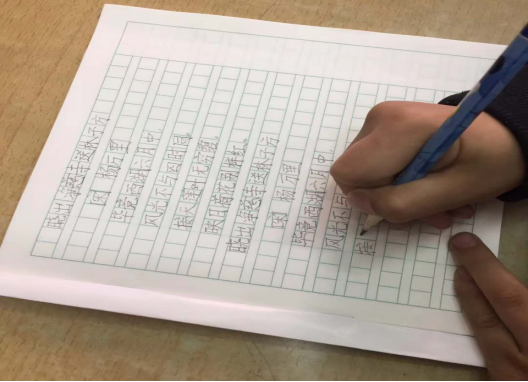 晓出净慈寺送林子方
宋 杨万里
毕竟西湖六月中，
风光不与四时同。
接天莲叶无穷碧，
映日荷花别样红。
晓出净慈寺送林子方
宋 杨万里
毕竟西湖六月中，
风光不与
接